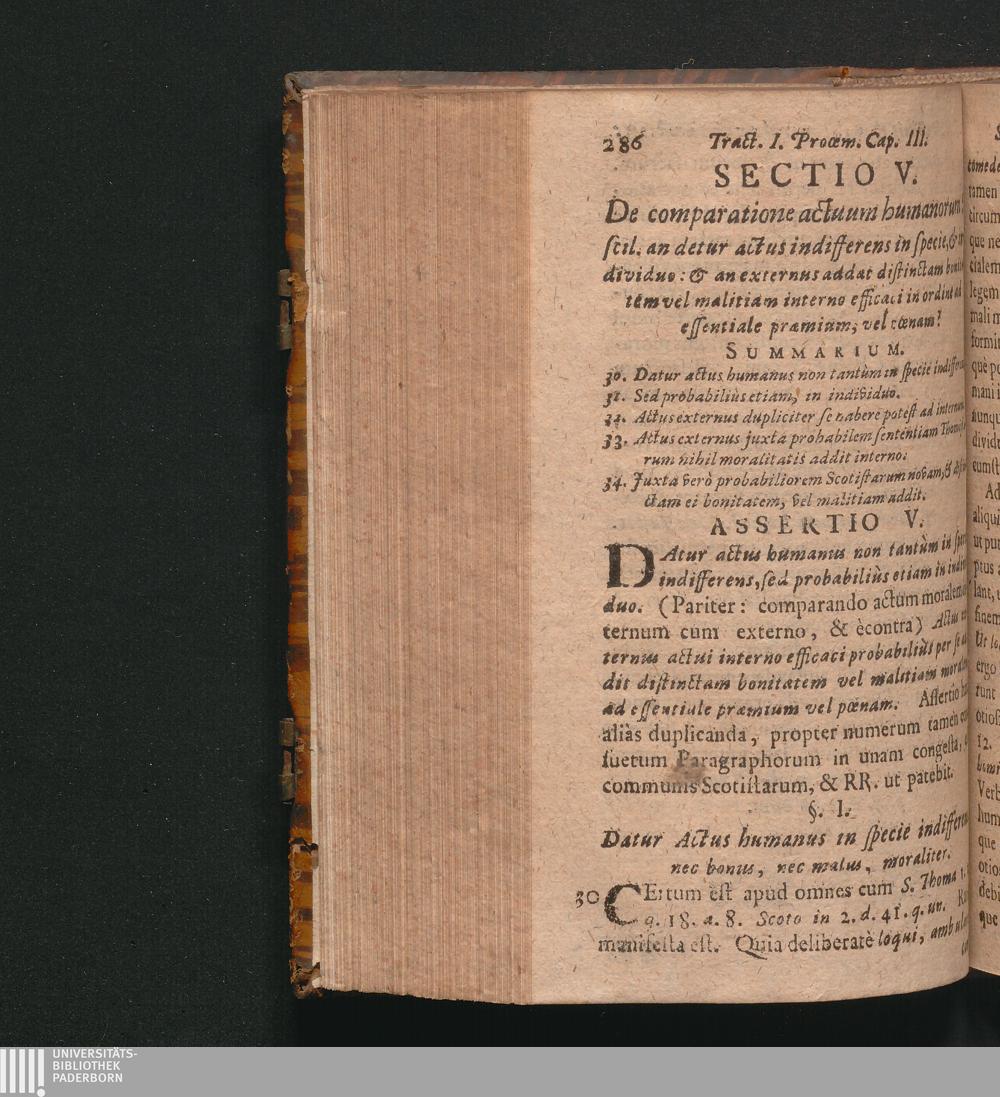 286 Tract. I. Proœm. Cap. III.
SECTIO V.
De comparatione actuum humanorum
scil. an detur actus indifferens in specie, &
dividuo: & an externus addat distinctam
tem vel malitiam interno efficaci in ordine ad
essentiale præmium, vel pœnam?
SUMMARIUM.
30. Datur actus humanus non tantùm in specie
31. Sed probabiliùs etiam, in individuo.
32. Actus externus dupliciter se habere potest ad
33. Actus externus juxta probabilem sententiam
rum nihil moralitatis addit interno.
34. Juxta verò probabiliorem Scotistarum novam, &
ctam ei bonitatem, vel malitiam addit.
ASSERTIO V.
DAtur actus humanus non tantùm in
indifferens, sed probabiliùs etiam in
duo. (Pariter: comparando actum moralem
ternum cum externo, & ècontra) Actus
ternus actui interno efficaci probabiliùs per se
dit distinctam bonitatem vel malitiam
ad essentiale præmium vel pœnam. Assertio
aliàs duplicanda, propter numerum tamen
suetum Paragraphorum in unam congesta,
communis Scotistarum, & RR. ut patebit.
§. I.
Datur Actus humanus in specie
nec bonus, nec malus, moraliter.
30 CErtum est apud omnes cum S. Thoma
q. 18. a. 8. Scoto in 2. d. 41. q. un.
manifesta est. Quia deliberatè loqui,
tamen
que ne
legem
mali
ergo
runt
12.
que
que
UNIVERSITÄTS-
BIBLIOTHEK
PADERBORN